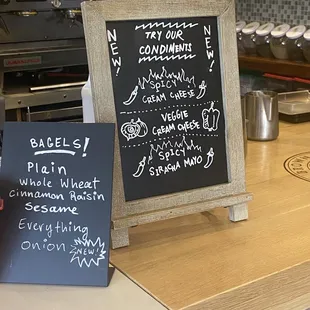 TRY OUR
CONDIMENTS
NEW!
NEW!
SPICY
CREAM CHEESE
VEGGIE
CREAM CHEESE
SPICY
SIRACHA MAYO
BAGELS!
Plain
Whole Wheat
Cinnamon Raisin
Sesame
Everything
Onion
NEW!